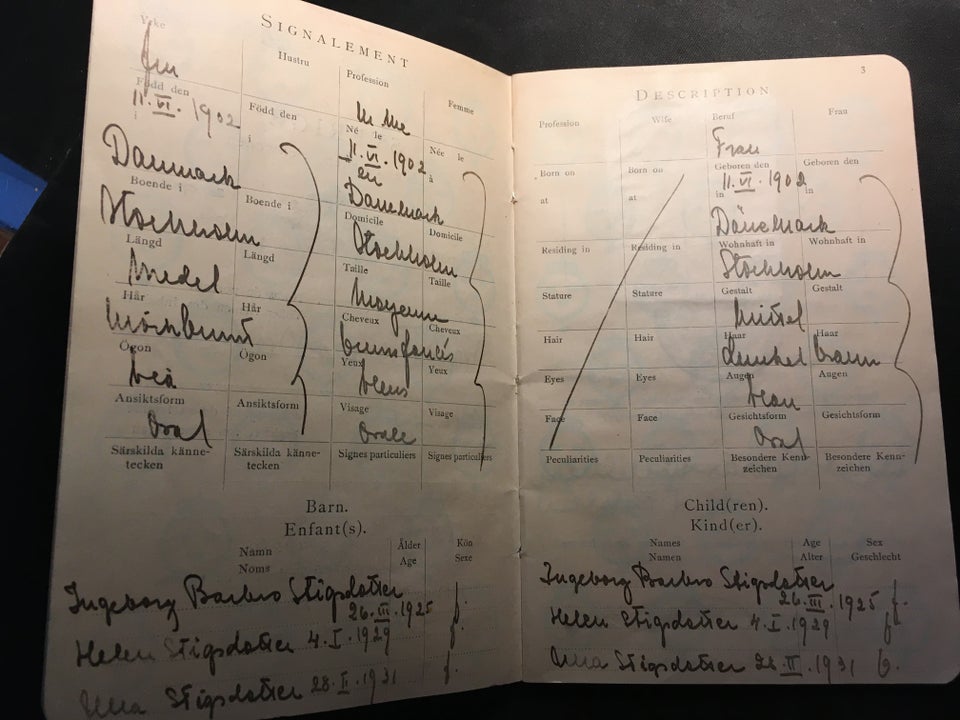 SIGNALEMENT
Yrke Hustru Profession Femme
fru Mme
Född den Född den Né le Née le
11.VI.1902 11.VI.1902
i i en à
Danmark Danemark
Boende i Boende i Domicile Domicile
Stockholm Stockholm
Längd Längd Taille Taille
Medel Moyenne
Hår Hår Cheveux Cheveux
Mörkbrunt
Ögon Ögon Yeux Yeux
blå bleus
Ansiktsform Ansiktsform Visage Visage
Oval Ovale
Särskilda känne-tecken Särskilda känne-tecken Signes particuliers Signes particuliers
Barn.
Enfant(s).
Namn Ålder Kön
Noms Age Sexe
Ingeborg Barbro Stigsdotter
26.III.1925 f.
Helen Stigsdotter 4.I.1929 f.
Stigsdotter 28.II.1931 f.
3
DESCRIPTION
Profession Wife Beruf Frau
Frau
Born on Born on Geboren den Geboren den
11.VI.1902
at at in in
Dänemark
Residing in Residing in Wohnhaft in Wohnhaft in
Stockholm
Stature Stature Gestalt Gestalt
Mittel
Hair Hair Haar Haar
Dunkel braun
Eyes Eyes Augen Augen
blau
Face Face Gesichtsform Gesichtsform
Oval
Peculiarities Peculiarities Besondere Kenn-zeichen Besondere Kenn-zeichen
Child(ren).
Kind(er).
Names Age Sex
Namen Alter Geschlecht
Ingeborg Barbro Stigsdotter
26.III.1925 f.
Helen Stigsdotter 4.I.1929 f.
Stigsdotter 28.II.1931